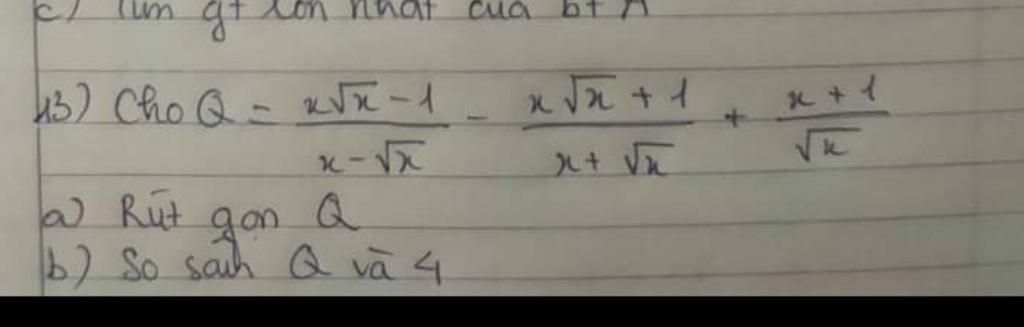 c) Tìm gt lớn nhất của bt A
13) Cho Q = \frac{x\sqrt{x} - 1}{x - \sqrt{x}} - \frac{x\sqrt{x} + 1}{x + \sqrt{x}} + \frac{x + 1}{\sqrt{x}}
a) Rút gọn Q
b) So sánh Q và 4